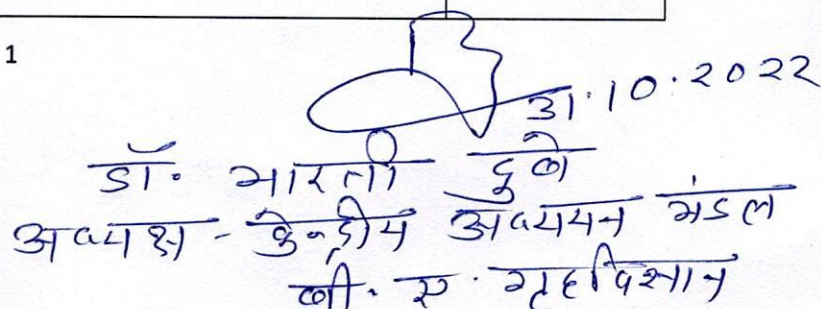 1
31.10.2022
डॉ. भारती दुबे
अध्यक्ष - केन्द्रीय अध्ययन मंडल
बी. ए. गृहविज्ञान